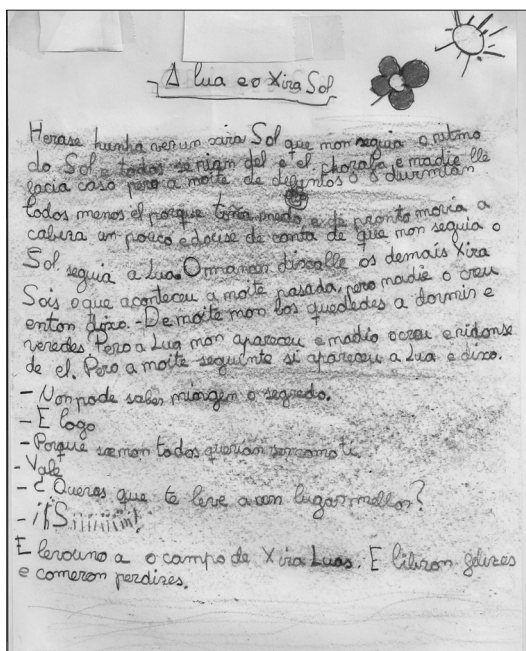 A lua e o Xira Sol
Herase hunha vez un xira Sol que non seguia o ritmo
do Sol e todos se rian del e el choraba e nadie lle
facia caso pero a noite de difuntos s durmian
todos menos el porque tenia medo e de pronto movia a
cabeza un pouco e douse de conta de que non seguia o
Sol seguia a Lua. O mañan dixolle os demais Xira
Sois o que aconteceu a noite pasada, pero nadie o creu
enton dixo. - De noite non los quededes a dormir e
veredes. Pero a Lua non apareceu e nadie o creu e ridonse
de el. Pero a noite seguinte si apareceu a Lua e dixo.
- Non pode saber ningen o segredo.
- E logo
- Porque senon todos querian ser como ti.
- Vale
- ¿Queres que te leve a un lugar mellor?
- ¡¡Siiiiiiii!!
E levouno a o campo de Xira Luas. E felices
e comeron perdizes.